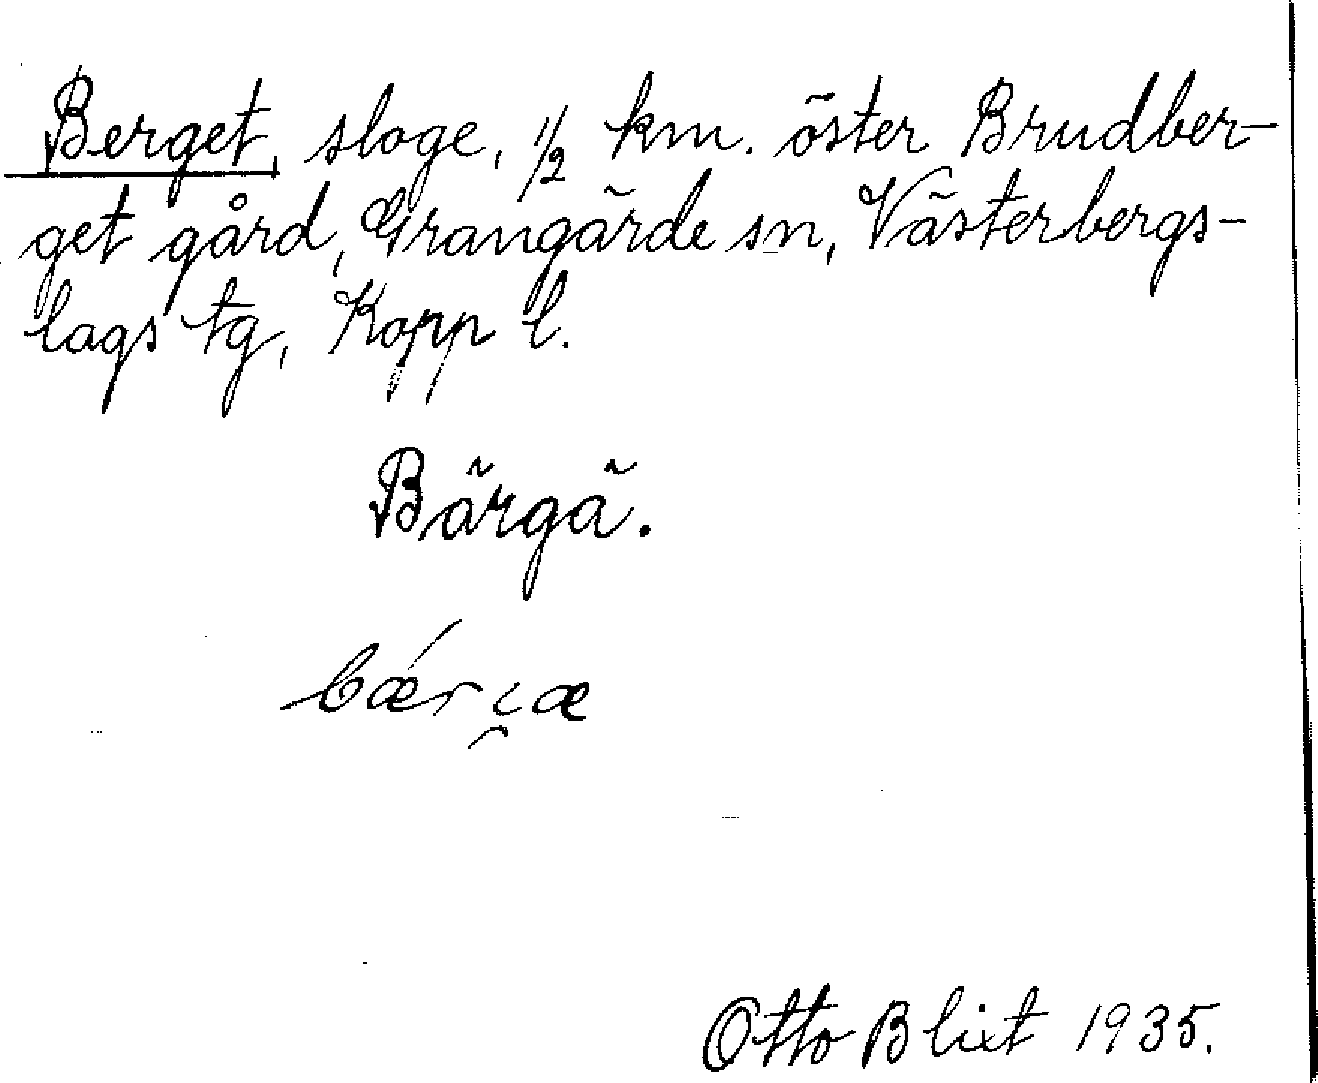 Berget, sloge, 1/2 km. öster Brudber-
get gård, Grangärde sn, Västerbergs-
lags tg, Kopp l.
Bärgä.
Otto Blixt 1935.